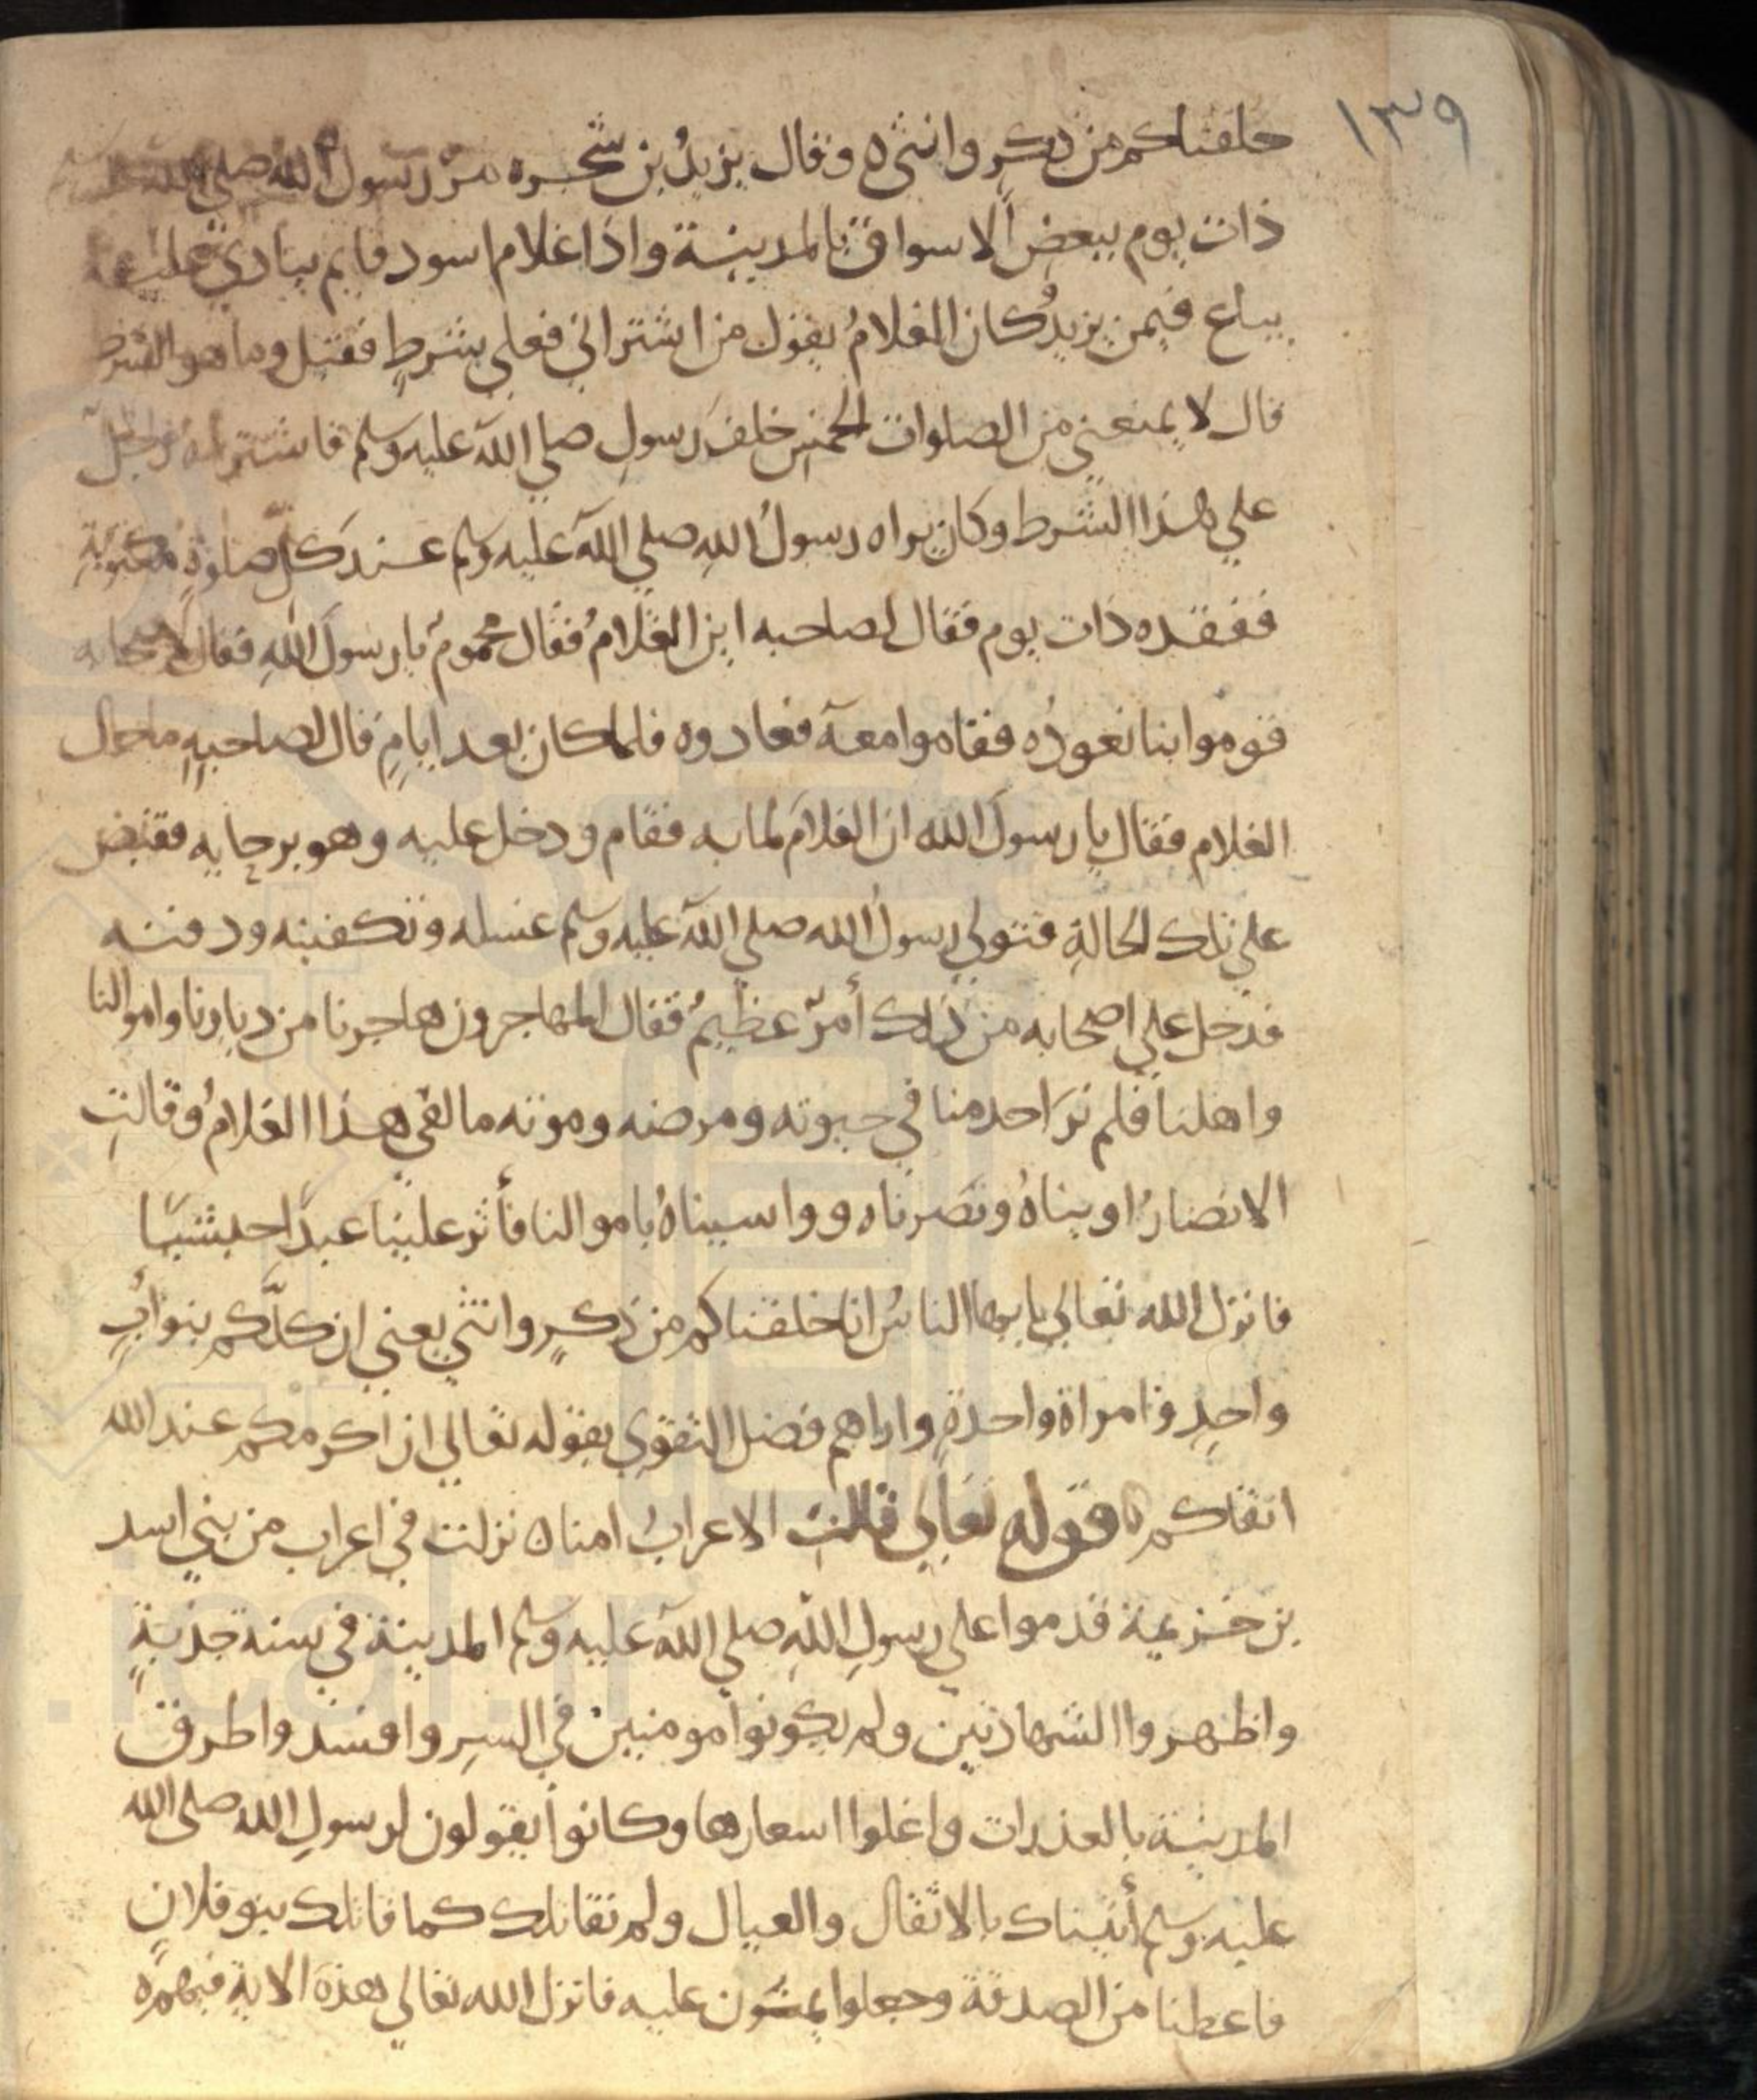 ١٣٩
خلقناكم من ذكرٍ وانثى ه وقال يزيدُ بن شجره مرّ رسولُ الله صلى الله عليه وسلم
ذات يوم ببعض الاسواق بالمدينة واذا غلام اسود قايم ينادي عليه
يباع فيمن يزيدُ كان الغلامُ يقول من اشتراني فعلي بشرطٍ فقيل وما هو الشرط
قال لا يمنعني من الصلوات الخمس خلفَ رسولِ صلي الله عليه وسلم فاشتراه رجلٌ
علي هذا الشرط وكان يراه رسولُ الله صلي الله عليه وسلم عند كلّ صلوةٍ مكتوبةٍ
ففقده ذات يوم فقال لصاحبه اين الغلامُ فقال محمومٌ يا رسولَ الله فقال لاصحابه
قوموا بنا نعودُه فقاموا معه فعادوه فلما كان بعد ايامٍ قال لصاحبهِ ما حال
الغلام فقال يا رسولَ الله ان الغلامَ لما به فقام ودخل عليه وهو برحايه فقبض
علي تلك الحالةِ فتولي رسولُ الله صلي الله عليه وسلم غسله وتكفينه ودفنه
فدخل علي اصحابه من ذلك أمرٌ عظيمٌ فقال المهاجرون هاجرنا من ديارنا واموالنا
واهلنا فلم نرَ احد منا في حيوته ومرضه وموته ما لقي هذا الغلامُ وقالتِ
الانصارُ اويناهُ ونصرناه وواسيناهُ باموالنا فأثر علينا عبدًا حبشيًا
فانزل الله تعالي يايها الناسُ انا خلقناكم من ذكرٍ وانثي يعني ان كلّكم بنوابٍ
واحدٍ وامراة واحدةٍ واراهم فضل التقوي بقوله تعالي ان اكرمكم عند الله
اتقاكم ه قوله تعالي قالتِ الاعرابُ امنا ه نزلت في اعراب من بني اسد
بن خزيمة قدموا علي رسولِ اللهِ صلي الله عليه وسلم المدينة في سنة جدبةٍ
واظهروا الشهادتين ولم يكونوا مومنين في السرِ وافسد واطرق
المدينة بالعذرات واغلوا اسعارها وكانوا يقولون لرسولِ الله صلى الله
عليه وسلم أتيناك بالاثقال والعيال ولم نقاتلك كما قاتلك بنو فلانٍ
فاعطنا من الصدقة وجعلوا يمنون عليه فانزل الله تعالي هذه الاية فيهم ه